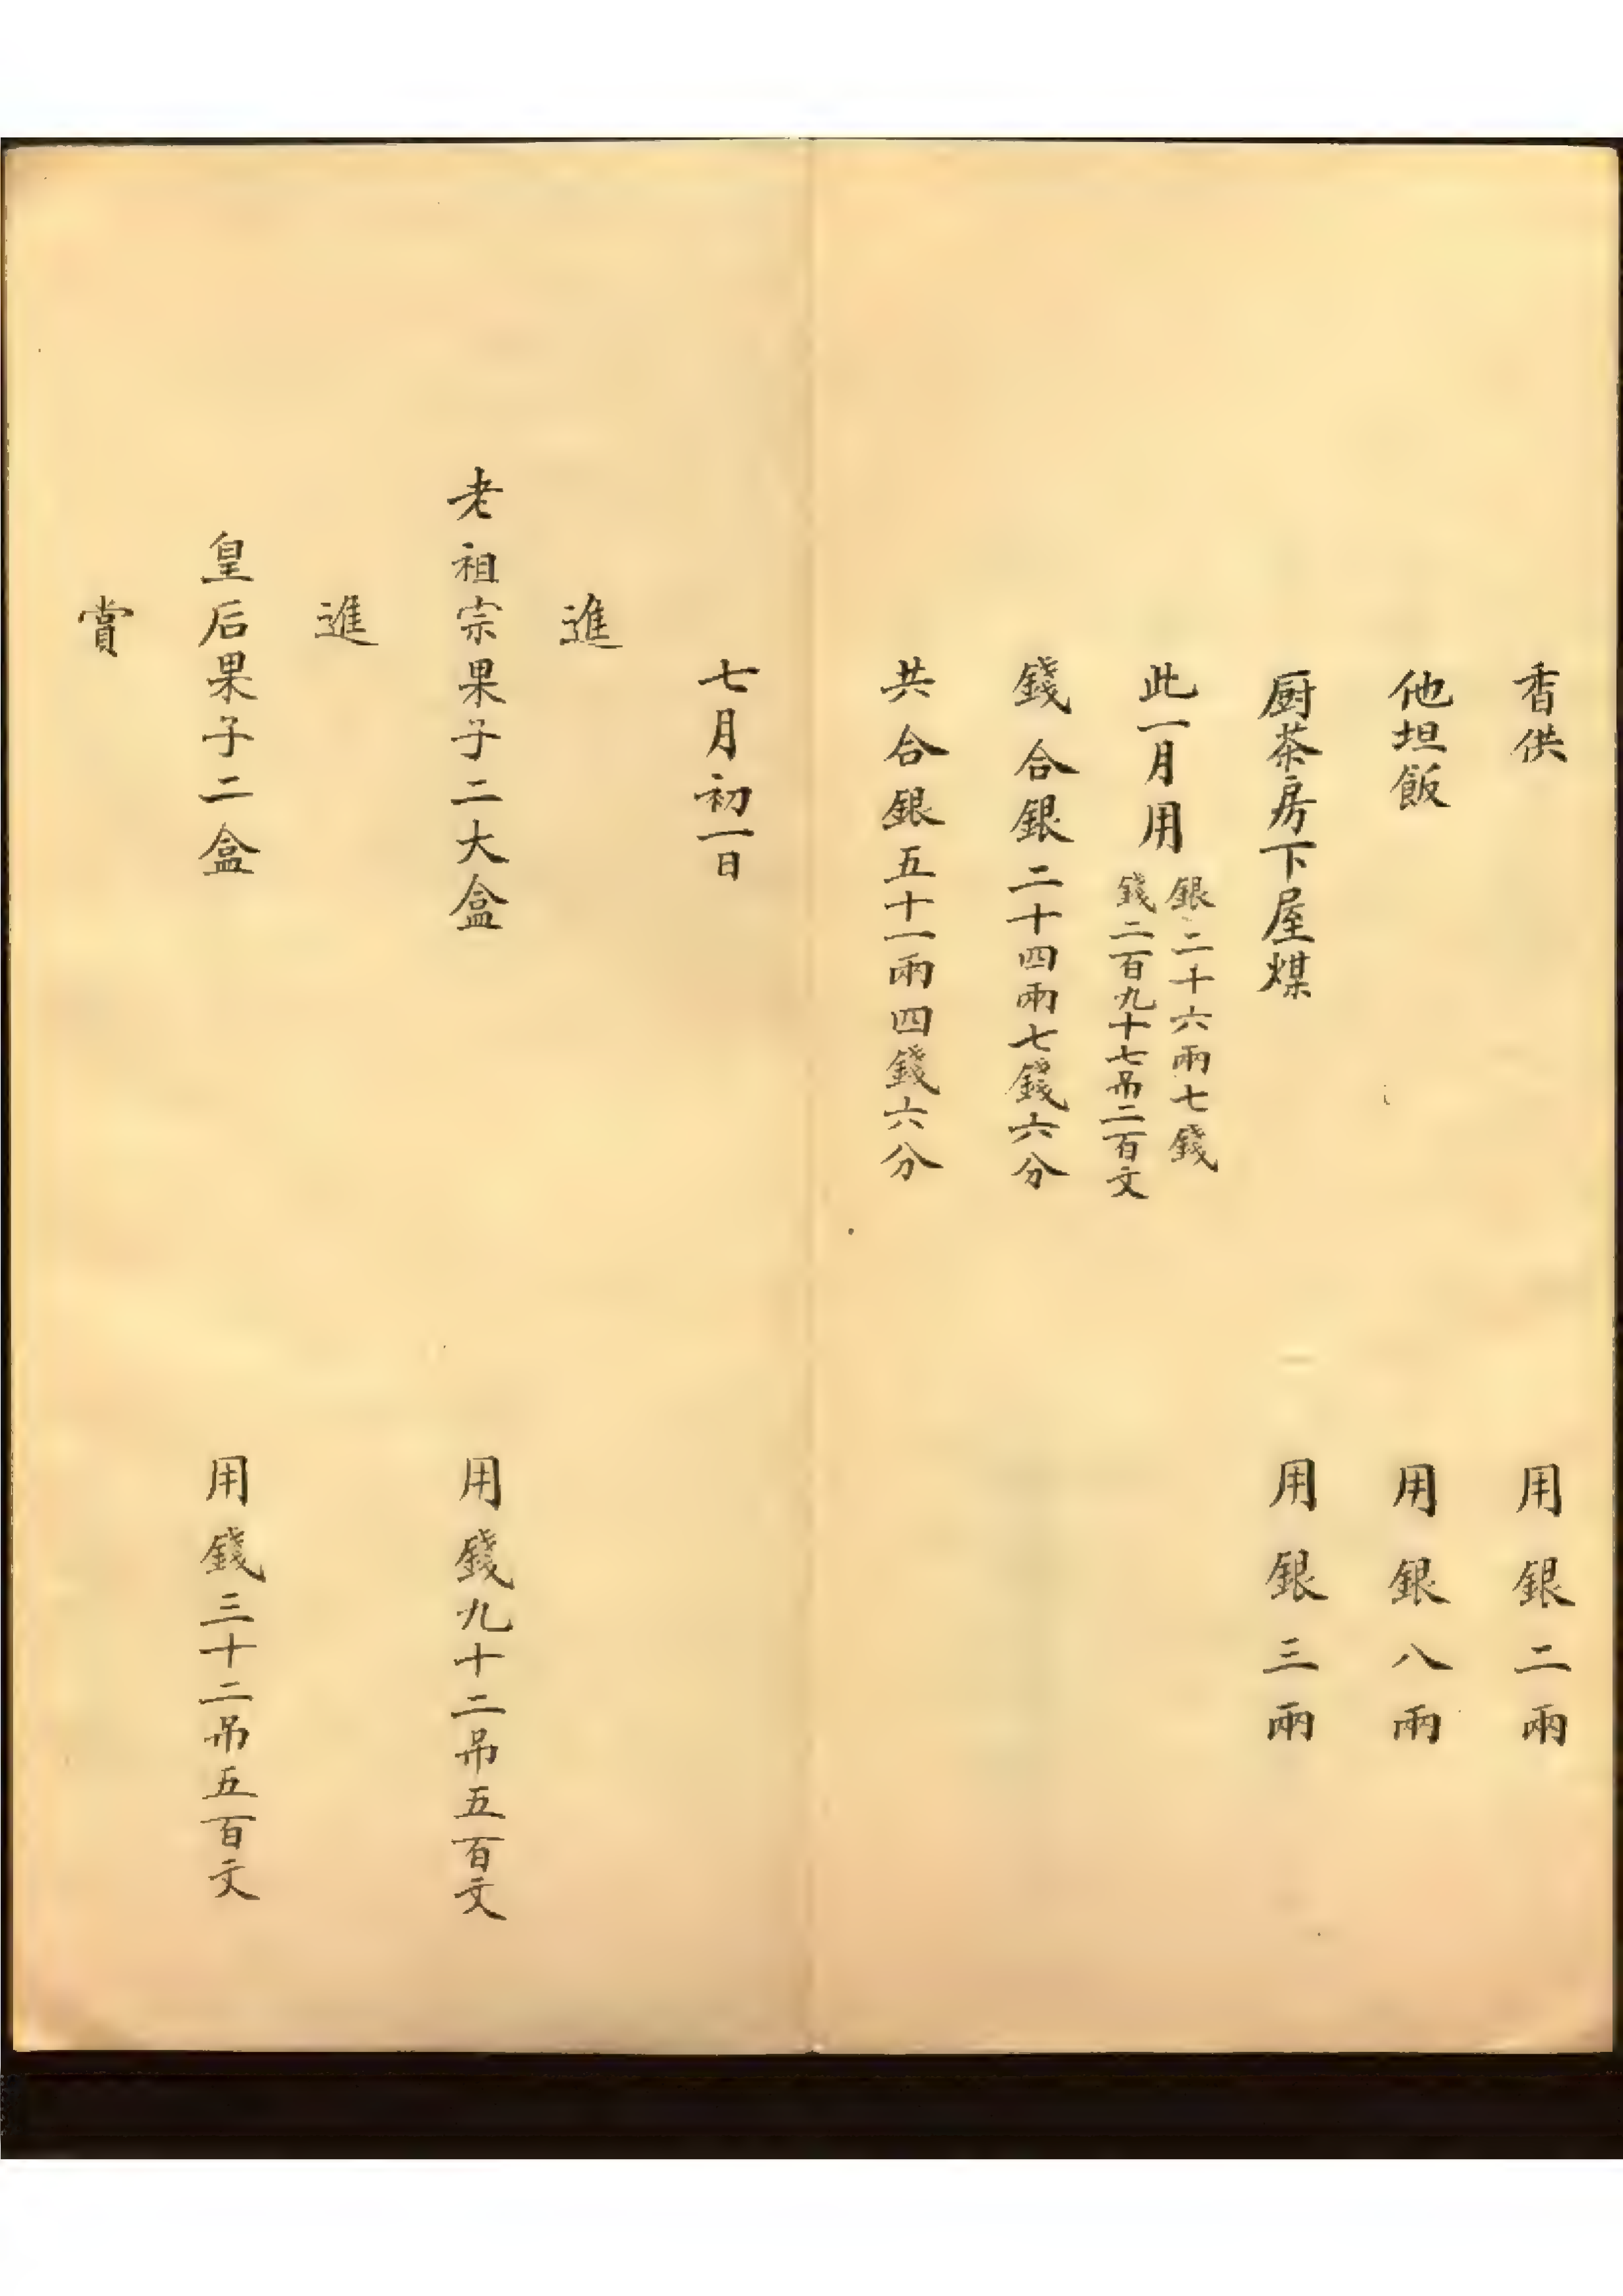 香供 用銀二兩
他坦飯 用銀八兩
厨茶房下屋煤 用銀三兩
此一月用
銀二十六兩七錢
錢二百九十七吊二百文
錢合銀二十四兩七錢六分
共合銀五十一兩四錢六分
七月初一日
進
老祖宗果子二大盒 用錢九十二吊五百文
進
皇后果子二盒 用錢三十二吊五百文
賞